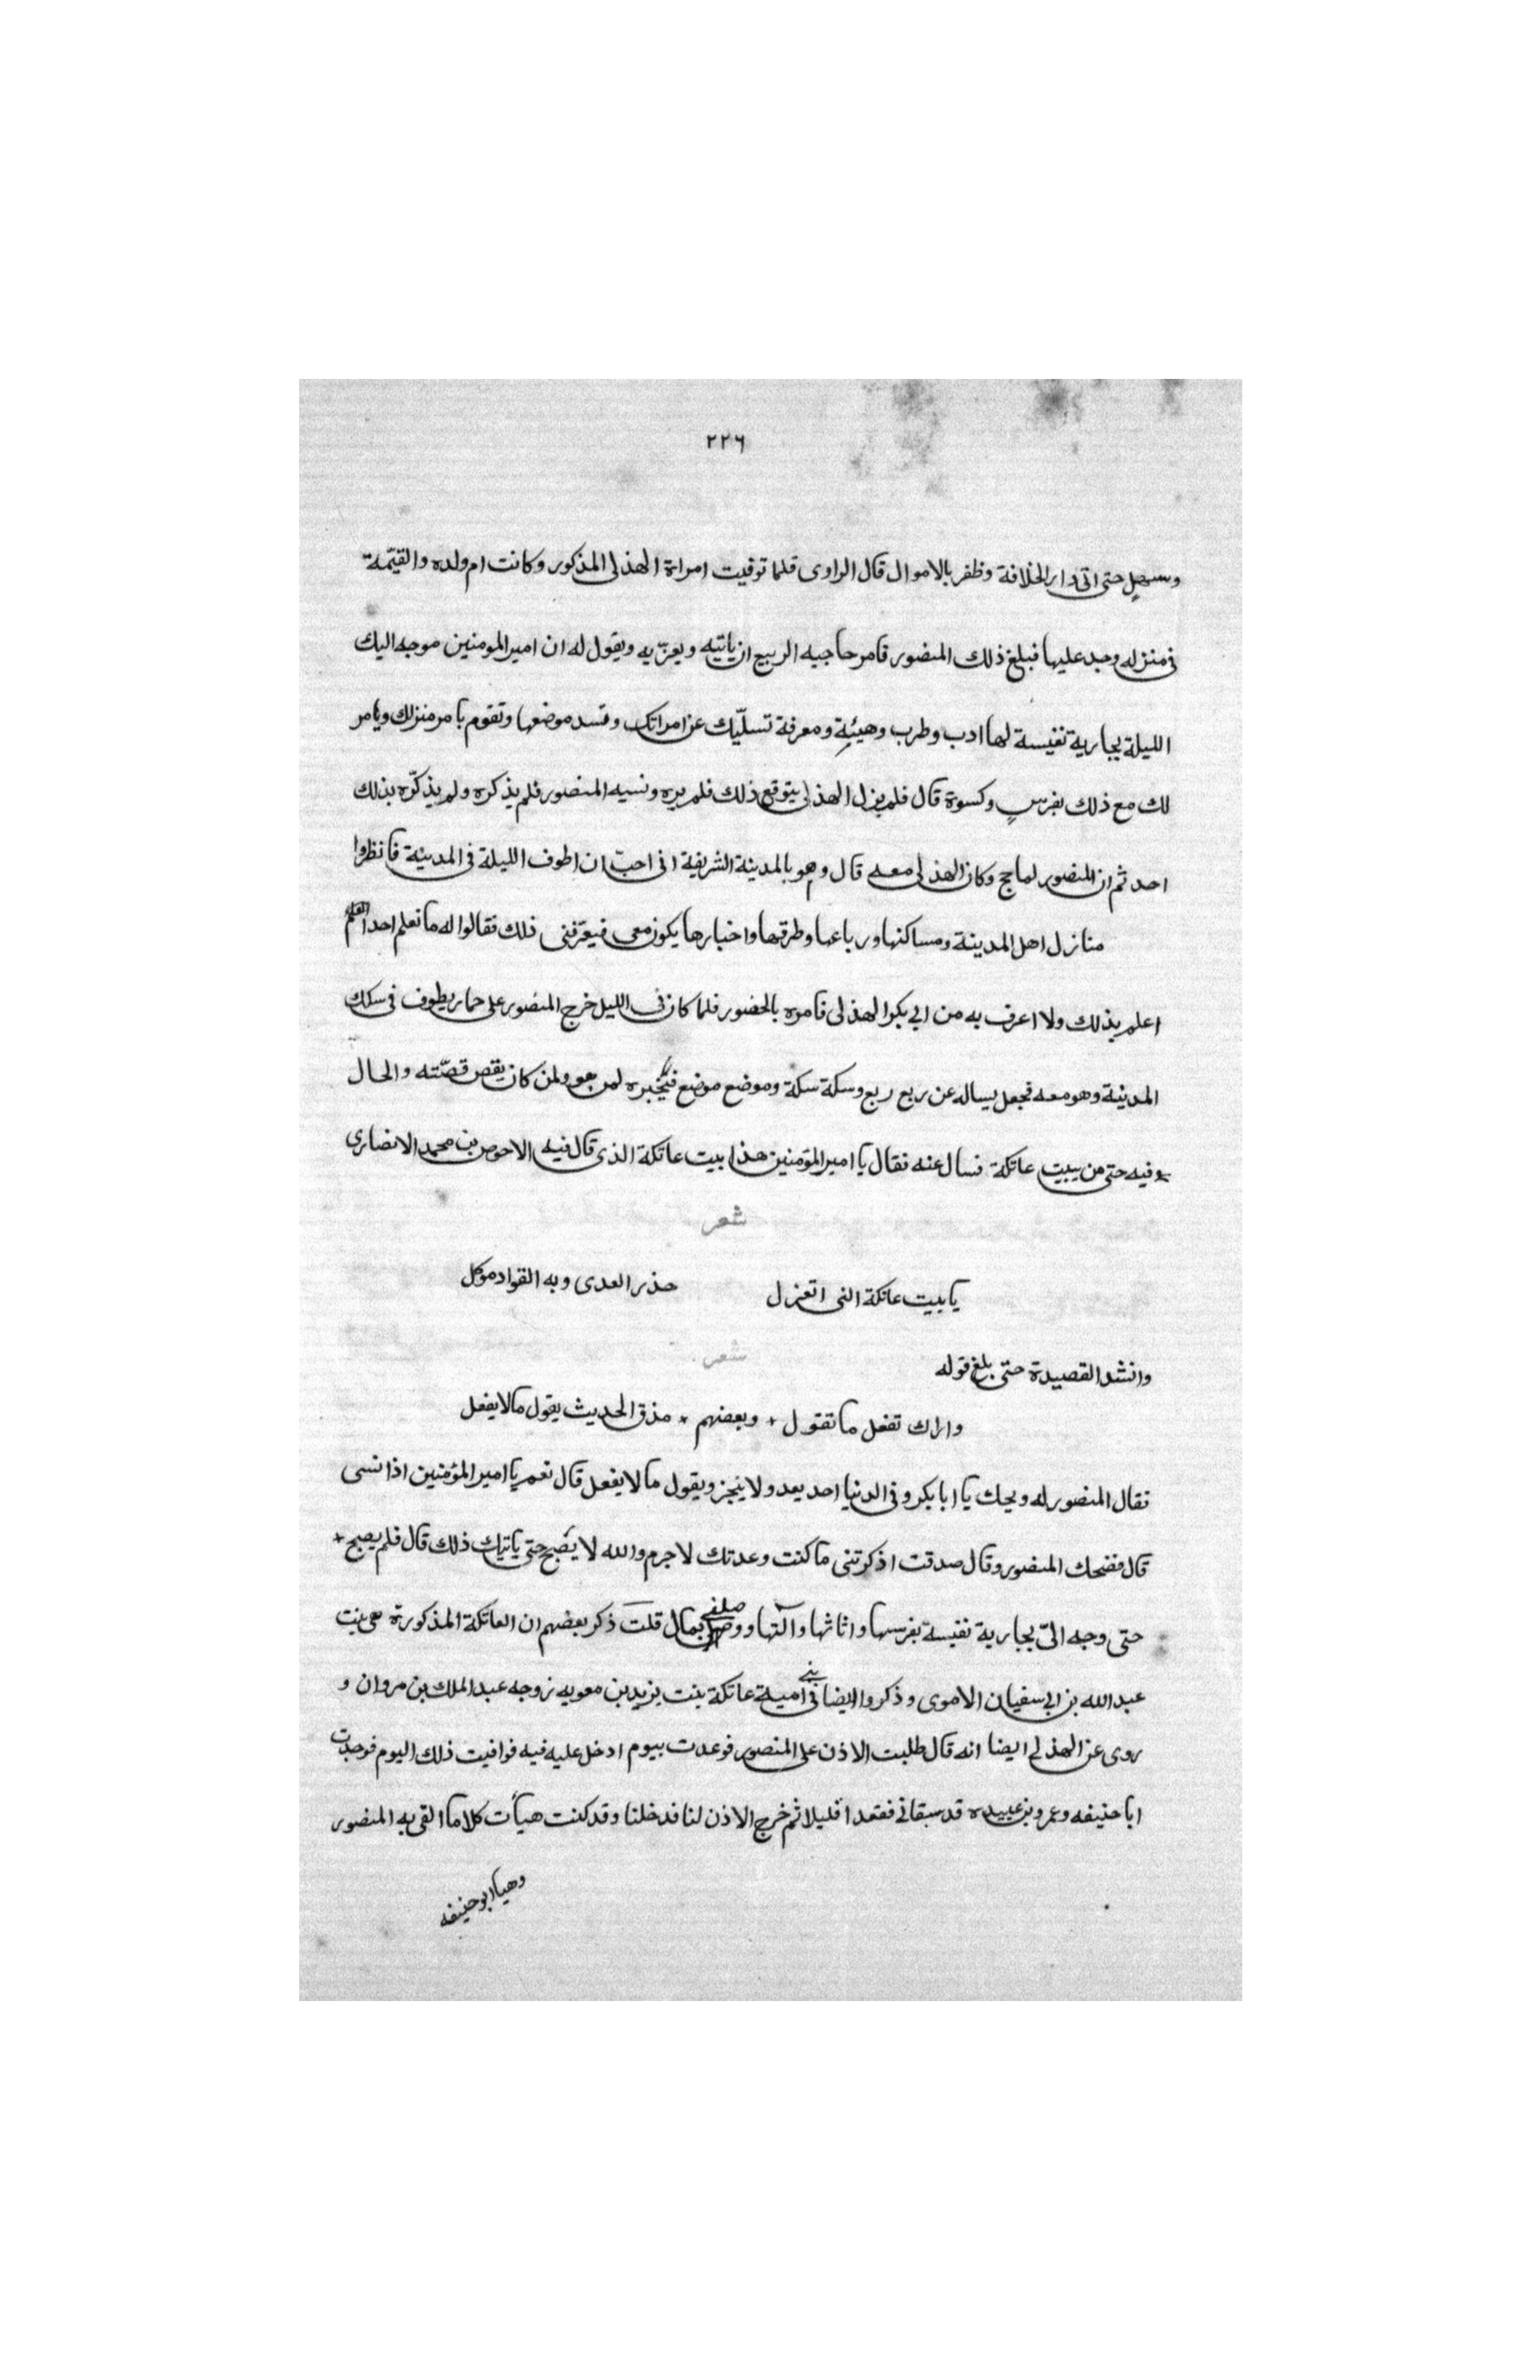 ٢٢٦
وسهل حتى اتى دار الخلافة وظفر بالاموال قال الراوى فلما توفيت امراة الهذلى المذكور وكانت ام ولده والقيّمة
فى منزله وجد عليها فبلغ ذلك المنصور فامر حاجبه الربيع ان ياتيه ويعزّيه ويقول له ان امير المومنين موجه اليك
الليلة بجارية نفيسة لها ادب وطرب وهيئةٍ ومعرفة تسلّيك عن امراتك وتسد موضعها وتقوم بامر منزلك ويامر
لك مع ذلك بفرسٍ وكسوة قال فلم يزل الهذلى يتوقع ذلك فلم يره ونسيه المنصور فلم يذكره ولم يذكّره بذلك
احد ثم ان المنصور لما حج وكان الهذلى معه قال وهو بالمدينة الشريفة انى احبّ ان اطوف الليلة فى المدينة فانظروا
منازل اهل المدينة ومساكنها ورباعها وطرقها واخبارها يكون معى فيعرّفنى ذلك فقالوا له ما نعلم احدا
اعلم بذلك ولا اعرف به من ابى بكر الهذلى فامره بالحضور فلما كان فى الليل خرج المنصور على حمار يطوف فى سكك
المدينة وهو معه فجعل يساله عن ربع ربع وسكة سكة وموضع موضع فيخبره لمن هو ولمن كان يقص قصّته والحال
فيه حتى من ببيت عاتكة فسال عنه فقال يا امير المؤمنين هذا بيت عاتكة الذى قال فيه الاحوص بن محمد الانصارى
شعر
يا بيت عاتكة التى اتعزل حذر العدى وبه الفواد موكل
وانشد القصيدة حتى بلغ قوله شعر
واراك تفعل ما تقول + وبعضهم + مذق الحديث يقول ما لا يفعل
فقال المنصور له ويحك يا ابا بكر وفى الدنيا احد يعد ولا ينجز ويقول ما لا يفعل قال نعم يا امير المؤمنين اذا نسى
قال فضحك المنصور وقال صدقت اذكرتنى ما كنت وعدتك لا جرم والله لا يصبح حتى ياتيك ذلك قال فلم يصبح +
حتى وجه الىّ بجارية نفيسة بفرسها واثاثها وآلتها ووصلنى بمال قلت ذكر بعضهم ان العاتكة المذكورة هى بنت
عبد الله بن ابى سفيان الاموى وذكروا ايضا فى بنى امية عاتكة بنت يزيد بن معويه زوجه عبد الملك بن مروان و
روى عن الهذلى ايضا انه قال طلبت الاذن على المنصور فوعدت بيوم ادخل عليه فيه فوافيت ذلك اليوم فوجدت
ابا حنيفه وعمرو بن عبيده قد سبقانى فقعدا قليلا ثم خرج الاذن لنا فدخلنا وقد كنت هيأت كلاما القى به المنصور
وهيا ابو حنيفه